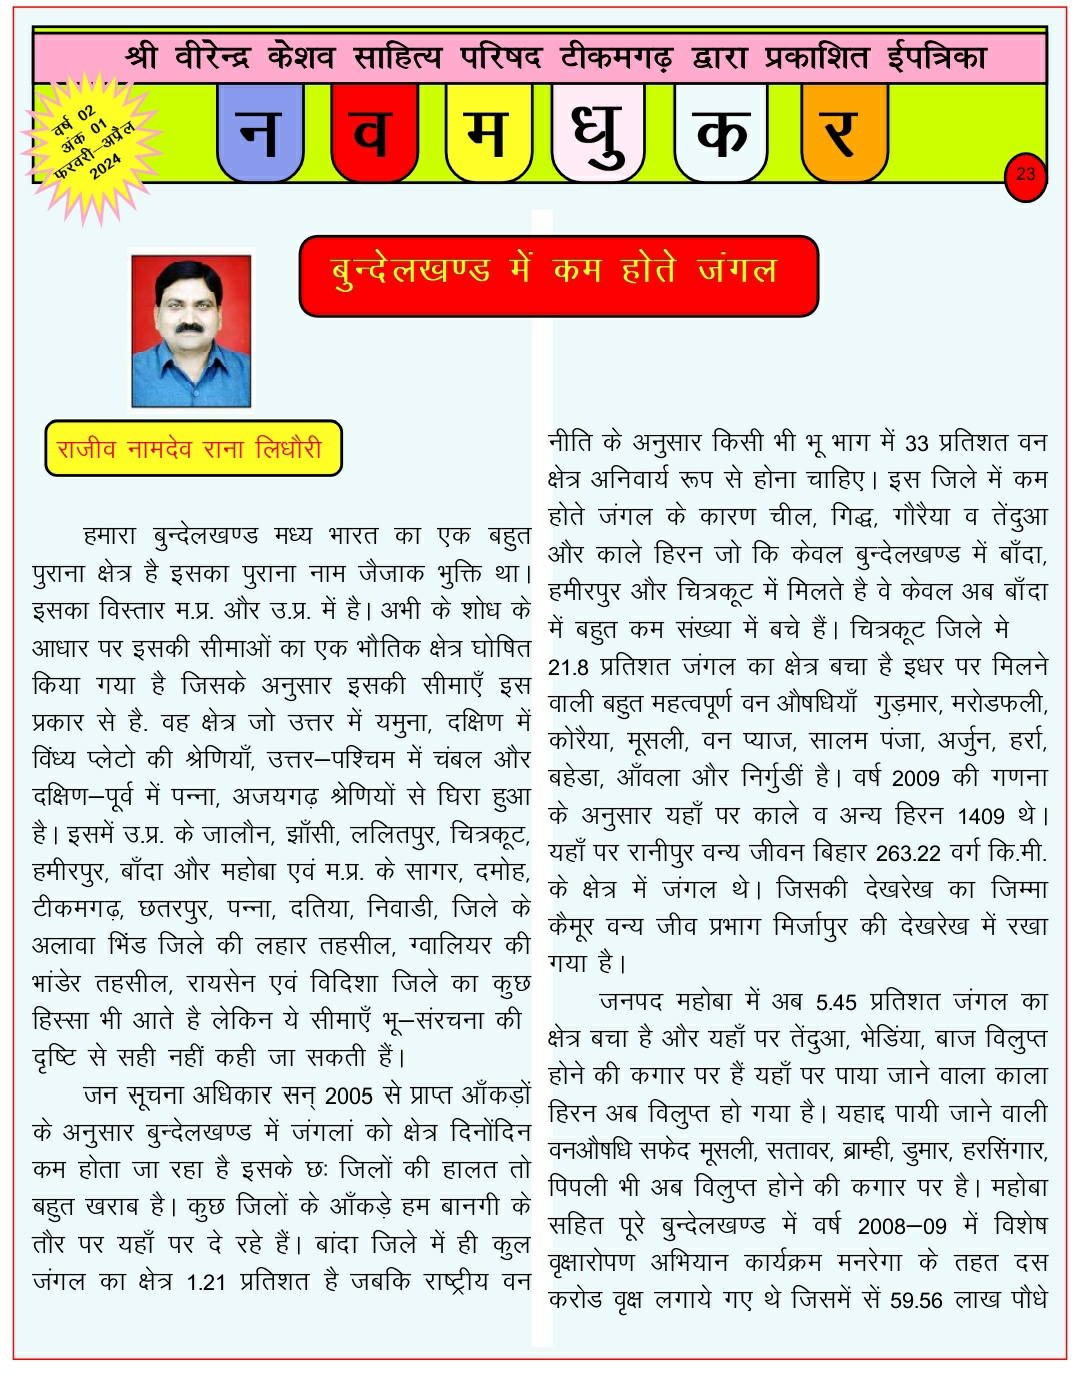 श्री वीरेन्द्र केशव साहित्य परिषद टीकमगढ़ द्वारा प्रकाशित ईपत्रिका
वर्ष 02
अंक 01
फरवरी–अप्रैल
2024
न व म धु क र
23
बुन्देलखण्ड में कम होते जंगल
राजीव नामदेव राना लिधौरी
हमारा बुन्देलखण्ड मध्य भारत का एक बहुत
पुराना क्षेत्र है इसका पुराना नाम जैजाक भुक्ति था।
इसका विस्तार म.प्र. और उ.प्र. में है। अभी के शोध के
आधार पर इसकी सीमाओं का एक भौतिक क्षेत्र घोषित
किया गया है जिसके अनुसार इसकी सीमाएँ इस
प्रकार से है. वह क्षेत्र जो उत्तर में यमुना, दक्षिण में
विंध्य प्लेटो की श्रेणियाँ, उत्तर–पश्चिम में चंबल और
दक्षिण–पूर्व में पन्ना, अजयगढ़ श्रेणियों से घिरा हुआ
है। इसमें उ.प्र. के जालौन, झाँसी, ललितपुर, चित्रकूट,
हमीरपुर, बाँदा और महोबा एवं म.प्र. के सागर, दमोह,
टीकमगढ़, छतरपुर, पन्ना, दतिया, निवाडी, जिले के
अलावा भिंड जिले की लहार तहसील, ग्वालियर की
भांडेर तहसील, रायसेन एवं विदिशा जिले का कुछ
हिस्सा भी आते है लेकिन ये सीमाएँ भू–संरचना की
दृष्टि से सही नहीं कही जा सकती हैं।
जन सूचना अधिकार सन् 2005 से प्राप्त आँकड़ों
के अनुसार बुन्देलखण्ड में जंगलां को क्षेत्र दिनोंदिन
कम होता जा रहा है इसके छः जिलों की हालत तो
बहुत खराब है। कुछ जिलों के आँकड़े हम बानगी के
तौर पर यहाँ पर दे रहे हैं। बांदा जिले में ही कुल
जंगल का क्षेत्र 1.21 प्रतिशत है जबकि राष्ट्रीय वन
नीति के अनुसार किसी भी भू भाग में 33 प्रतिशत वन
क्षेत्र अनिवार्य रूप से होना चाहिए। इस जिले में कम
होते जंगल के कारण चील, गिद्ध, गौरैया व तेंदुआ
और काले हिरन जो कि केवल बुन्देलखण्ड में बाँदा,
हमीरपुर और चित्रकूट में मिलते है वे केवल अब बाँदा
में बहुत कम संख्या में बचे हैं। चित्रकूट जिले मे
21.8 प्रतिशत जंगल का क्षेत्र बचा है इधर पर मिलने
वाली बहुत महत्वपूर्ण वन औषधियाँ गुड़मार, मरोडफली,
कोरैया, मूसली, वन प्याज, सालम पंजा, अर्जुन, हर्रा,
बहेडा, आँवला और निर्गुडीं है। वर्ष 2009 की गणना
के अनुसार यहाँ पर काले व अन्य हिरन 1409 थे।
यहाँ पर रानीपुर वन्य जीवन बिहार 263.22 वर्ग कि.मी.
के क्षेत्र में जंगल थे। जिसकी देखरेख का जिम्मा
कैमूर वन्य जीव प्रभाग मिर्जापुर की देखरेख में रखा
गया है।
जनपद महोबा में अब 5.45 प्रतिशत जंगल का
क्षेत्र बचा है और यहाँ पर तेंदुआ, भेडिंया, बाज विलुप्त
होने की कगार पर हैं यहाँ पर पाया जाने वाला काला
हिरन अब विलुप्त हो गया है। यहाद्द पायी जाने वाली
वनऔषधि सफेद मूसली, सतावर, ब्राम्ही, डुमार, हरसिंगार,
पिपली भी अब विलुप्त होने की कगार पर है। महोबा
सहित पूरे बुन्देलखण्ड में वर्ष 2008–09 में विशेष
वृक्षारोपण अभियान कार्यक्रम मनरेगा के तहत दस
करोड वृक्ष लगाये गए थे जिसमें सें 59.56 लाख पौधे